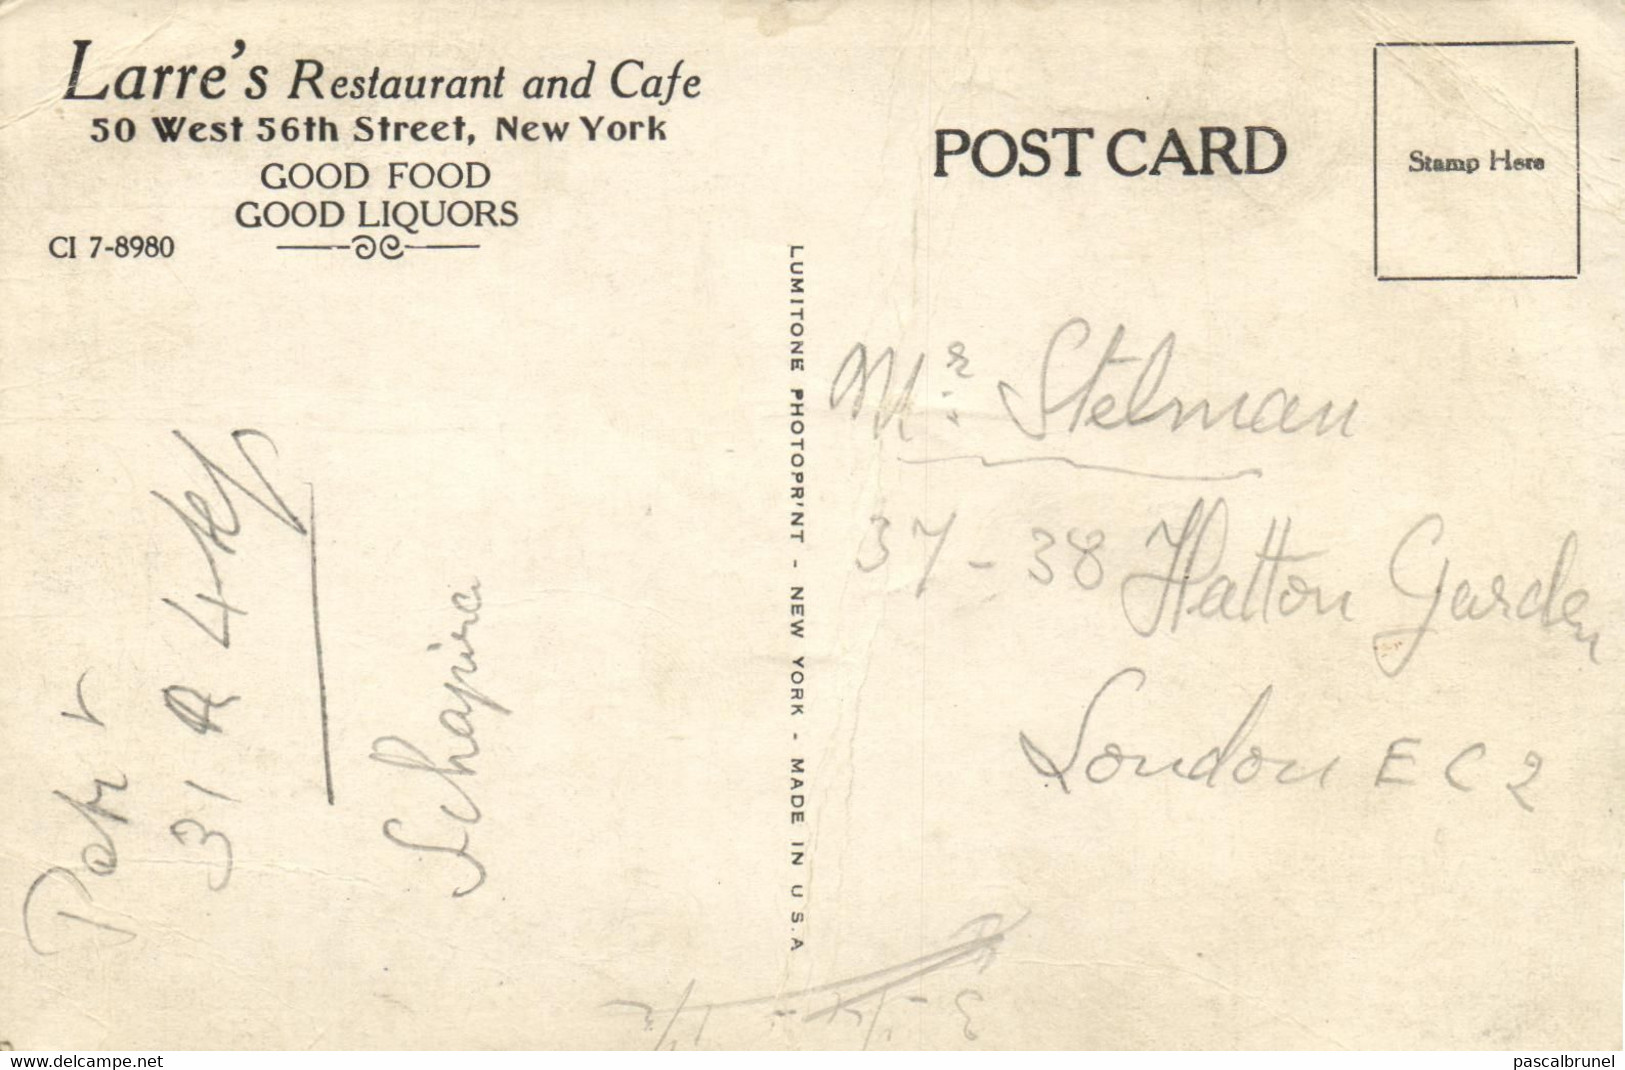 Larre's Restaurant and Cafe
50 West 56th Street, New York
GOOD FOOD
GOOD LIQUORS
CI 7-8980
POST CARD
Stamp Here
LUMITONE PHOTOPRINT - NEW YORK - MADE IN U.S.A
Mr. Stelman
37-38 Hatton Garden
London EC2
31 A 4
Schapira
www.delcampe.net
pascalbrunel